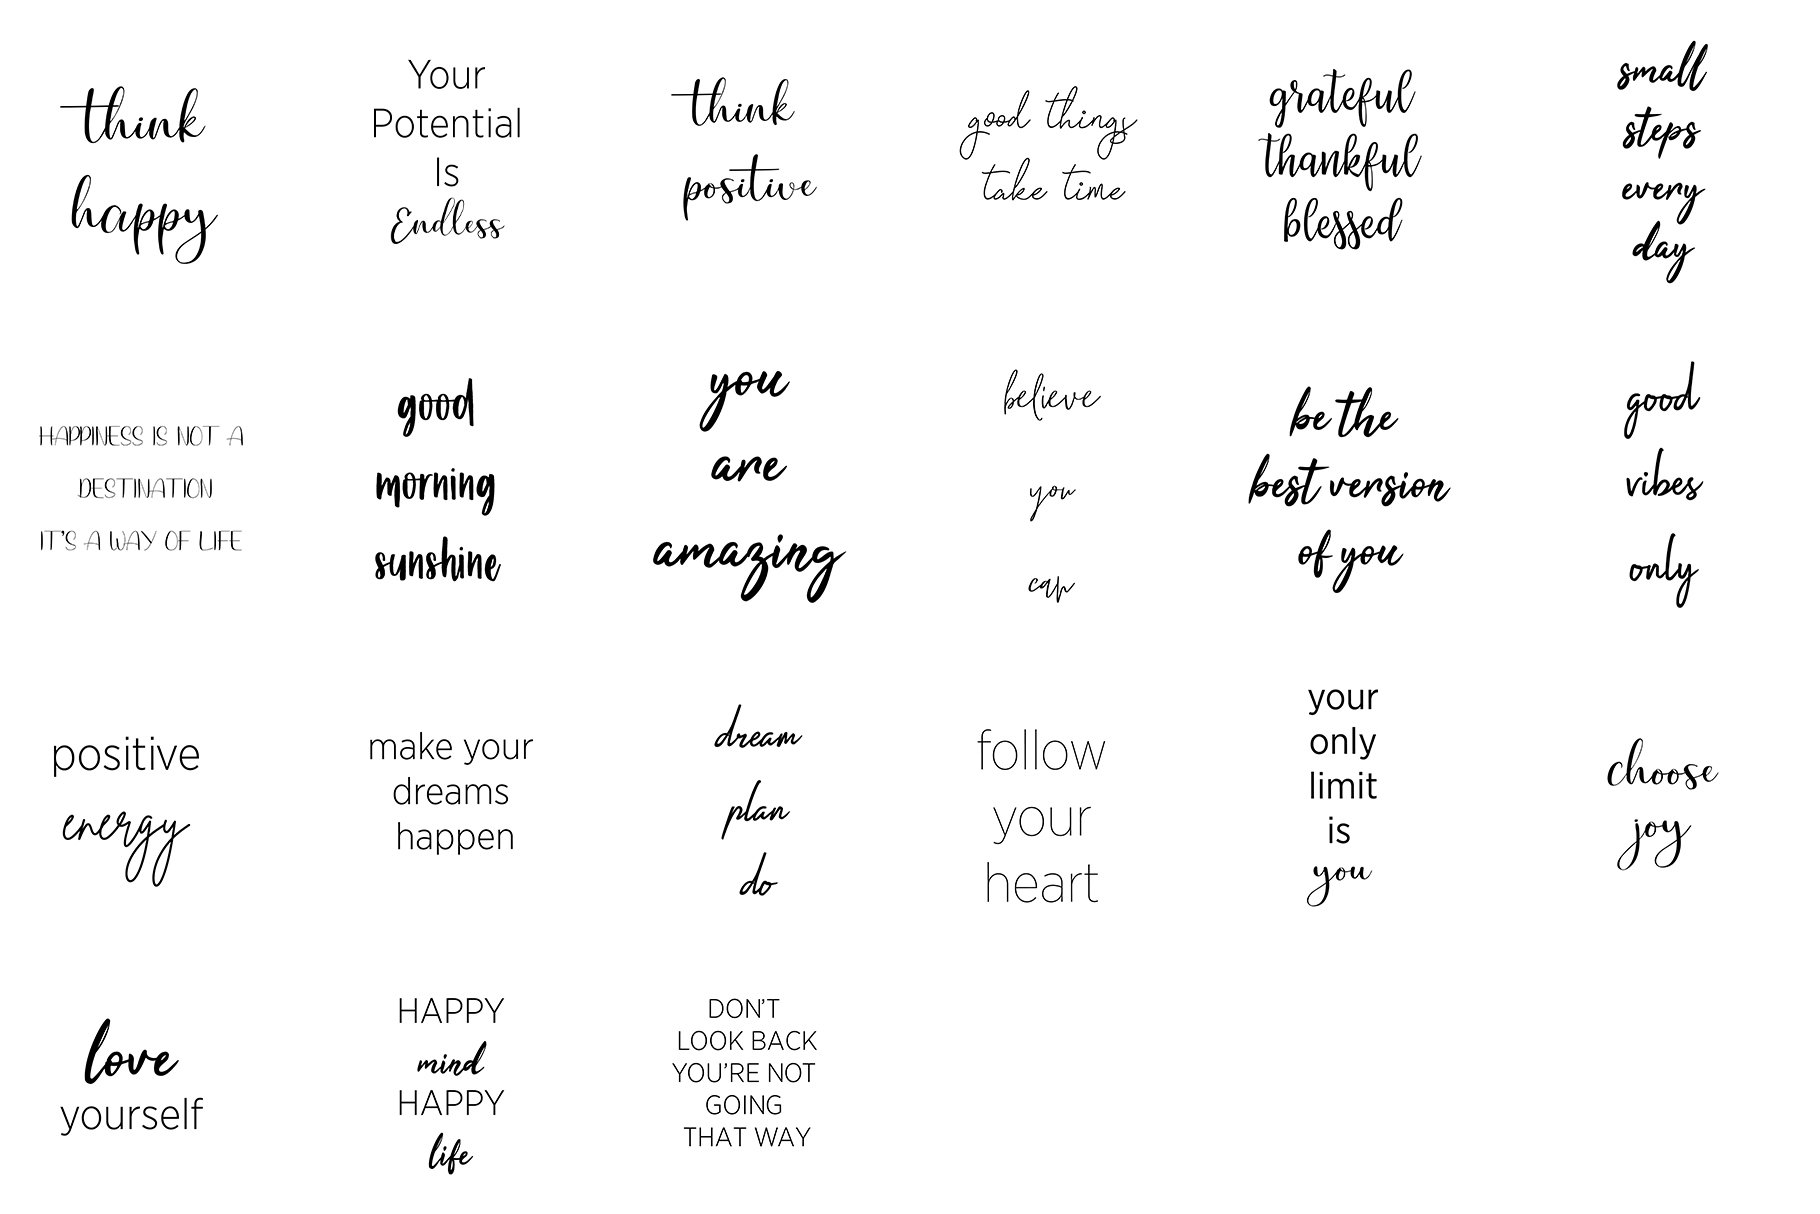 think
happy
Your
Potential
Is
Endless
think
positive
good things
take time
grateful
thankful
blessed
small
steps
every
day
HAPPINESS IS NOT A
DESTINATION
IT'S A WAY OF LIFE
good
morning
sunshine
you
are
amazing
believe
you
can
be the
best version
of you
good
vibes
only
positive
energy
make your
dreams
happen
dream
plan
do
follow
your
heart
your
only
limit
is
you
choose
joy
love
yourself
HAPPY
mind
HAPPY
life
DON'T
LOOK BACK
YOU'RE NOT
GOING
THAT WAY